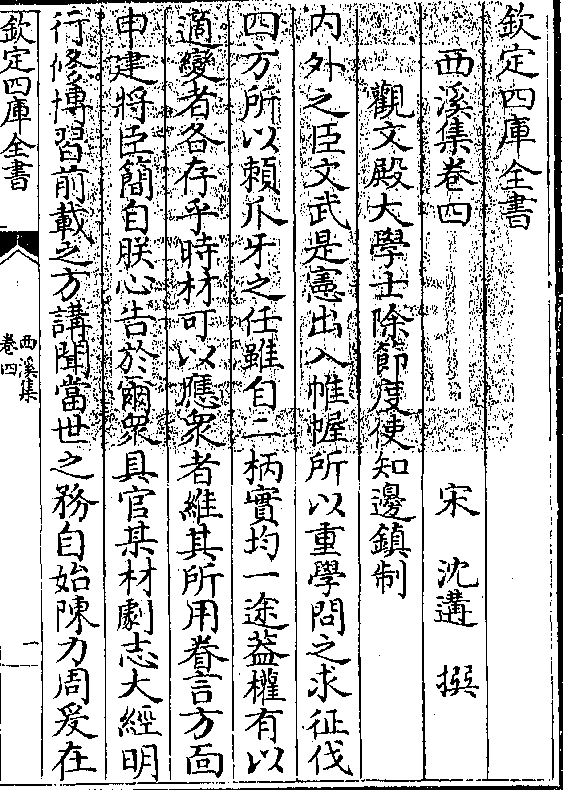 欽定四庫全書
西溪集卷四
宋 沈遘 撰
觀文殿大學士除節度使知邊鎮制
内外之臣文武是憲出入帷幄所以重學問之求征伐
四方所以賴爪牙之任雖自二柄實均一途葢權有以
適變者各存乎時材可以應衆者維其所用眷言方面
申建將臣簡自朕心告於爾衆具官某材劇志大經明
行修博習前載之方講聞當世之務自始陳力周爰在
欽定四庫全書
西溪集
卷四
一